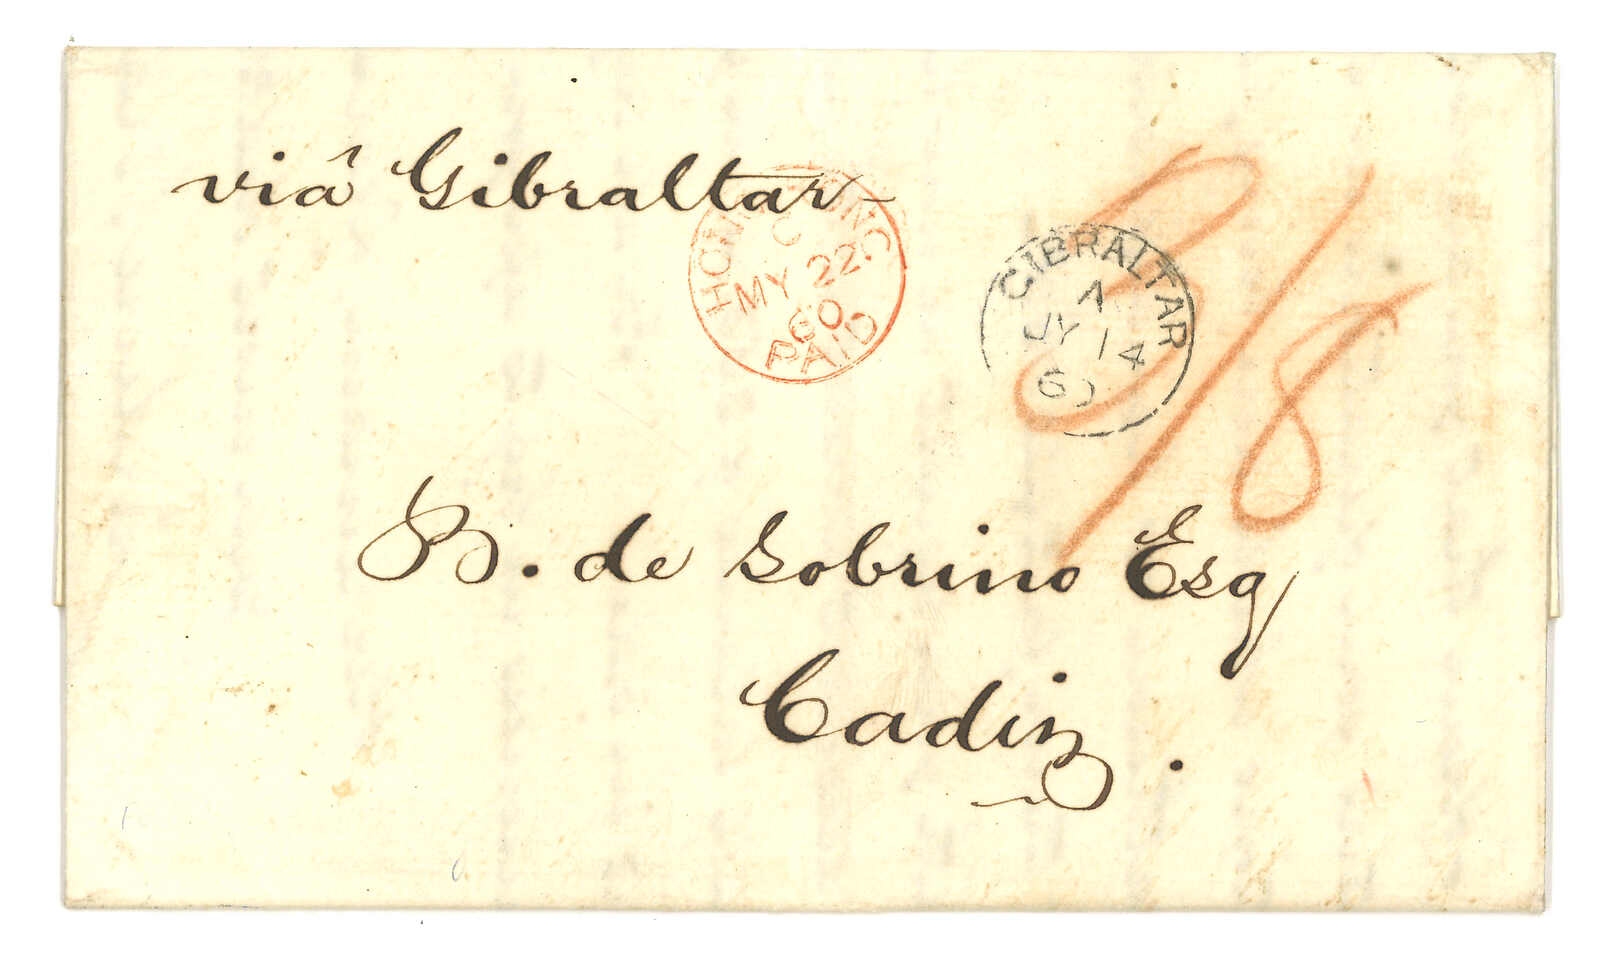 viâ Gibraltar
HONG KONG
C
MY 22
60
PAID
GIBRALTAR
A
JY 14
60
3/8
B. de Sobrino Esq
Cadiz.